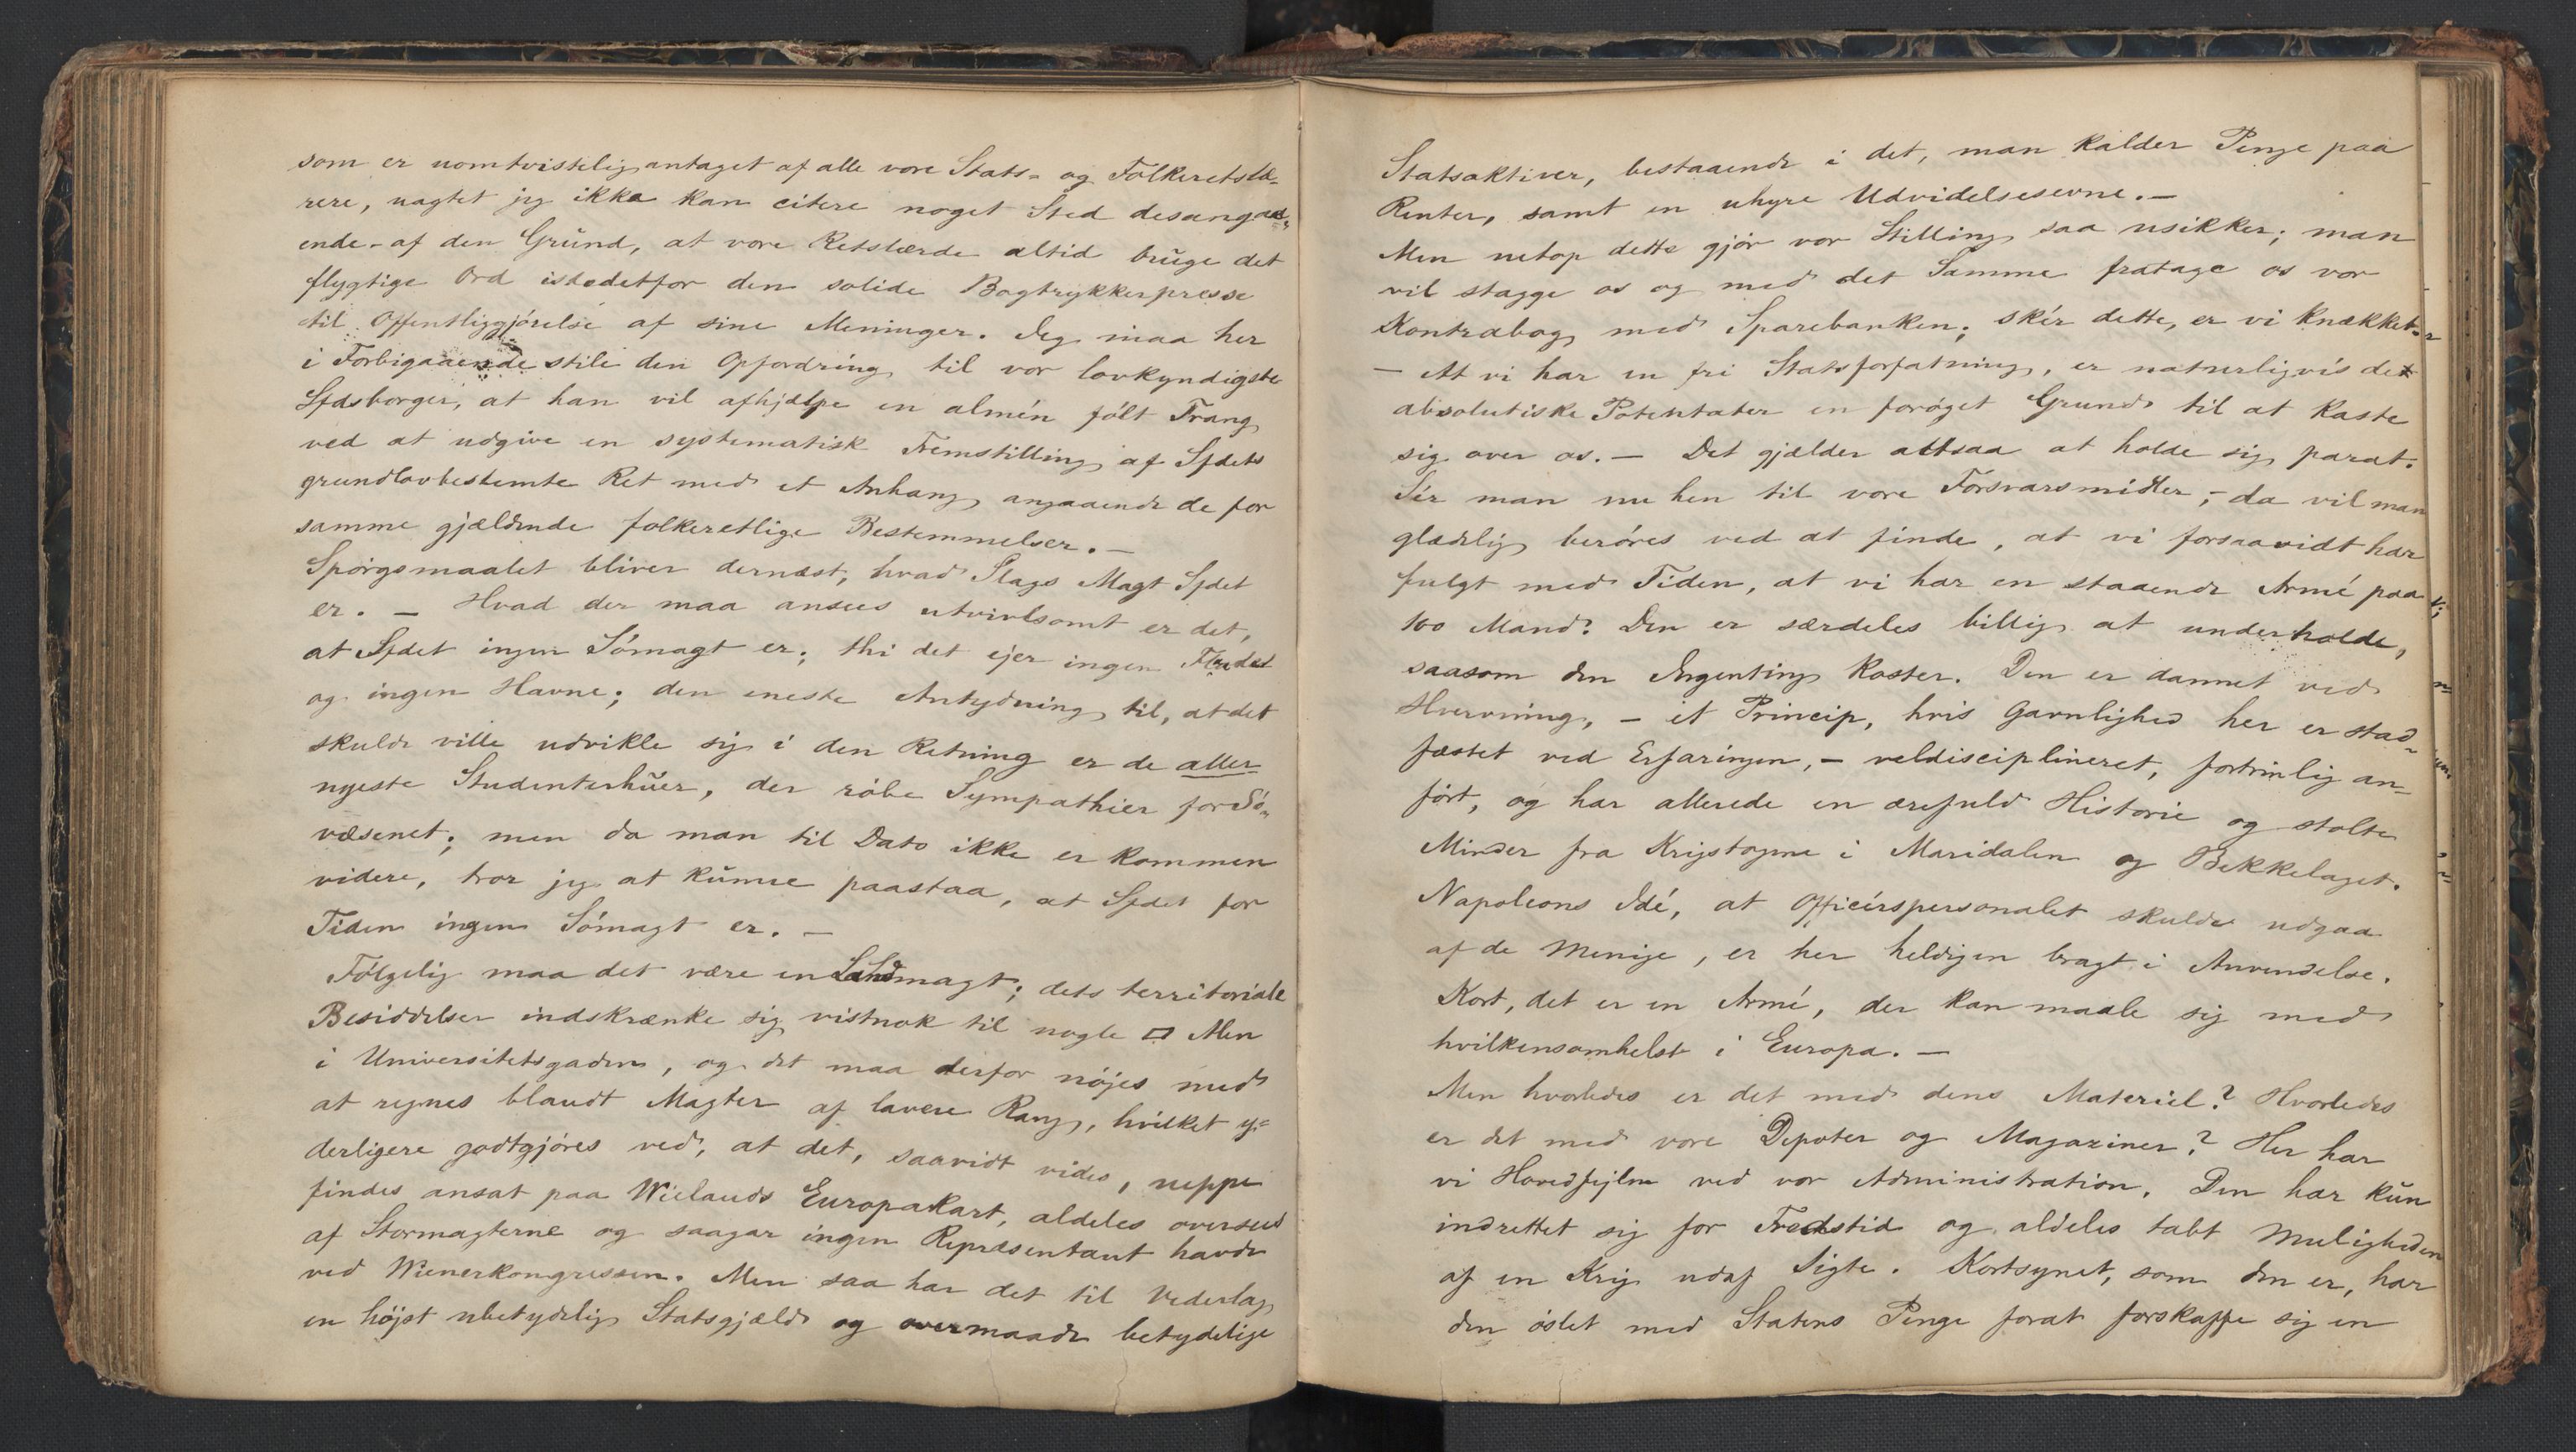 som er uomtvistelig antaget af alle vore Stats- og Folkeretslæ-
rere, uagtet jeg ikke kan citere noget Sted desangaa-
ende - af den Grund, at vore Retslærde altid bruge det
flygtige Ord istedetfor den solide Bogtrykkerpresse
til Offentliggjörelse af sine Meninger. Jeg maa her
i Forbigaaende stile den Opfordring til vor lovkyndigste
Sfdsborger, at han vil afhjælpe en almén fölt Trang
ved at udgive en systematisk Fremstilling af Sfdets
grundlovbestemte Ret med et Anhang angaaende de for
samme gjældende folkeretlige Bestemmelser. -
Spörgsmaalet bliver dernæst, hvad Slags Magt Sfdet
er. - Hvad der maa ansees utvivlsomt er det,
at Sfdet ingen Sömagt er; thi det ejer ingen Flaade
og ingen Havne; den eneste Antydning til, at det
skulde ville udvikle sig i den Retning er de aller-
nyeste Studenterhuer, der röbe Sympathier for Sö-
væsenet; men da man til Dato ikke er kommen
videre, tror jeg at kunne paastaa, at Sfdet for
Tiden ingen Sömagt er. -
Fölgelig maa det være en Landmagt; dets territoriale
Besiddelser indskrænke sig vistnok til nogle □ Alen
i Universitetsgaden, og det maa derfor nöjes med
at regnes blandt Magter af lavere Rang, hvilket y-
derligere godtgjöres ved, at det, saavidt vides, neppe
findes ansat paa Wielands Europakart, aldeles overseet
af Stormagterne og saagar ingen Repræsentant havde
ved Wienerkongressen. Men saa har det til Vederlag
en höjst ubetydelig Statsgjæld og overmaade betydelige
Statsaktiver, bestaaende i det, man kalder Penge paa
Renter, samt en uhyre Udvidelsesevne. -
Men netop dette gjör vor Stilling saa usikker; man
vil stagge os og med det Samme fratage os vor
Kontrabog med Sparebanken; skér dette, er vi knækket.
- At vi har en fri Statsforfatning, er naturligvis det
absolutiske Potentater en foröget Grund til at kaste
sig over os. - Det gjælder altsaa at holde sig parat.
Sér man nu hen til vore Forsvarsmidler, - da vil man
glædelig beröres ved at finde, at vi forsaavidt har
fulgt med Tiden, at vi har en staaende Armé paa
100 Mand. Den er særdeles billig at underholde,
saasom den Ingenting koster. Den er dannet ved
Hvervning, - et Princip, hvis Gavnlighed her er stad-
fæstet ved Erfaringen, - veldisciplineret, fortrinlig an-
fört, og har allerede en ærefuld Historie og stolte
Minder fra Krigstogene i Maridalen og Bekkelaget.
Napoleons Idé, at Officérspersonalet skulde udgaa
af de Menige, er her heldigen bragt i Anvendelse.
Kort, det er en Armé, der kan maale sig med
hvilkensomhelst i Europa. -
Men hvorledes er det med dens Materiel? Hvorledes
er det med vore Depoter og Magaziner? Her har
vi Hovedfejlen ved vor Administration. Den har kun
indrettet sig for Fredstid og aldeles tabt Muligheden
af en Krig udaf Sigte. Kortsynet, som den er, har
den öslet med Statens Penge forat forskaffe sig en